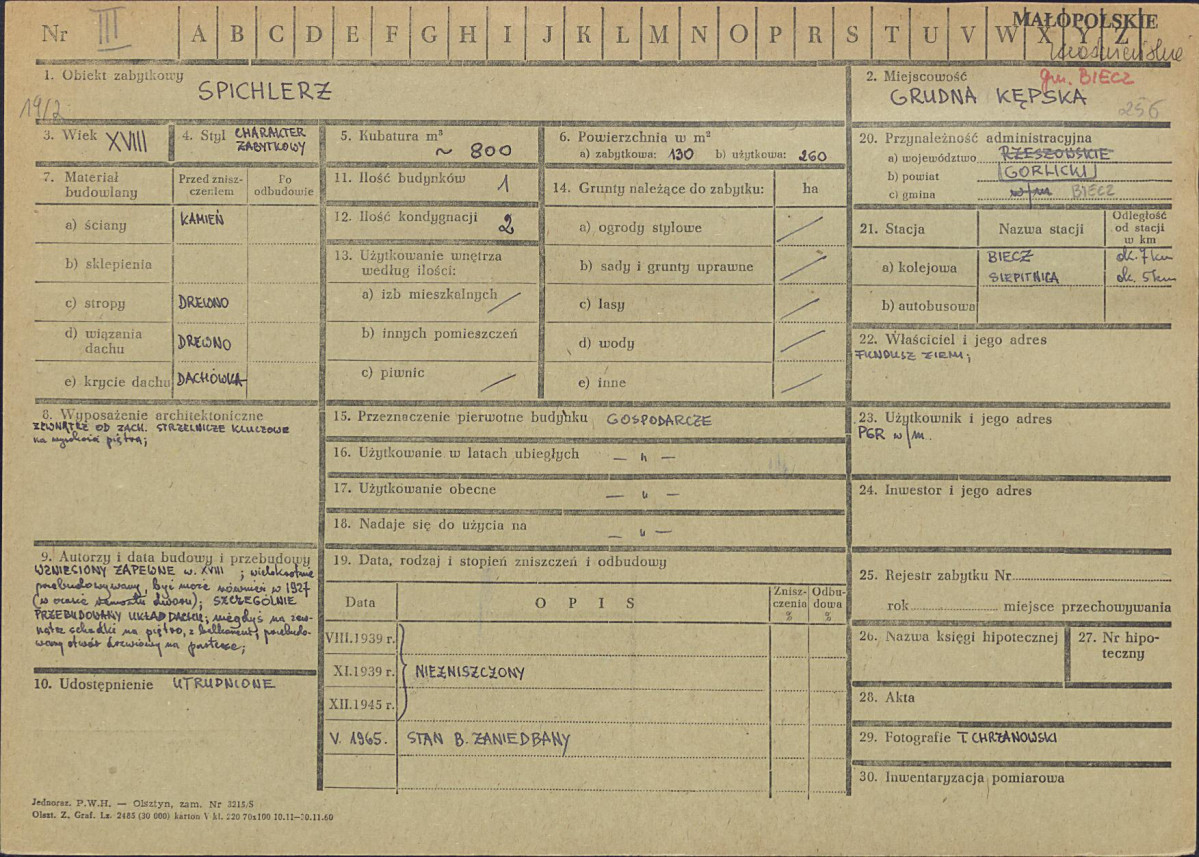 Nr III A B C D E F G H I J K L M N O P R S T U V W X Y Z
MAŁOPOLSKIE
1. Obiekt zabytkowy
SPICHLERZ
19/2
2. Miejscowość gm. BIECZ
GRUDNA KĘPSKA
256
3. Wiek XVIII
4. Styl CHARAKTER
ZABYTKOWY
5. Kubatura m³
~ 800
6. Powierzchnia w m²
a) zabytkowa: 130 b) użytkowa: 260
7. Materiał
budowlany
Przed znisz-
czeniem
Po
odbudowie
a) ściany KAMIEŃ
b) sklepienia
c) stropy DREWNO
d) wiązania
dachu DREWNO
e) krycie dachu DACHÓWKA
8. Wyposażenie architektoniczne
ZEWNĄTRZ OD ZACH. STRZELNICZE KLUCZOWE
na wysokości piętra;
9. Autorzy i data budowy i przebudowy
WZNIESIONY ZAPEWNE w. XVIII ; wielokrotnie
przebudowywany, być może również w 1927
(w czasie remontu dworu); SZCZEGÓLNIE
PRZEBUDOWANY UKŁAD DACHU; niegdyś na zew-
nątrz schodki na piętro, przebudo-
wany otwór drzwiowy na parterze;
10. Udostępnienie UTRUDNIONE
11. Ilość budynków 1
12. Ilość kondygnacji 2
13. Użytkowanie wnętrza
według ilości:
a) izb mieszkalnych /
b) innych pomieszczeń
c) piwnic /
14. Grunty należące do zabytku: ha
a) ogrody stylowe /
b) sady i grunty uprawne /
c) lasy /
d) wody /
e) inne /
15. Przeznaczenie pierwotne budynku GOSPODARCZE
16. Użytkowanie w latach ubiegłych — " —
17. Użytkowanie obecne — " —
18. Nadaje się do użycia na — " —
19. Data, rodzaj i stopień zniszczeń i odbudowy
Data OPIS
Znisz-
czenia
%
Odbu-
dowa
%
VIII.1939 r.
XI.1939 r. NIEZNISZCZONY
XII.1945 r.
V. 1965. STAN B. ZANIEDBANY
20. Przynależność administracyjna
a) województwo RZESZOWSKIE
b) powiat GORLICKI
c) gmina w/m BIECZ
21. Stacja Nazwa stacji
Odległość
od stacji
w km
a) kolejowa
BIECZ ok. 7 km
SIEPITNICA ok. 5 km
b) autobusowa
22. Właściciel i jego adres
FUNDUSZ ZIEMI;
23. Użytkownik i jego adres
PGR w/m.
24. Inwestor i jego adres
25. Rejestr zabytku Nr
rok miejsce przechowywania
26. Nazwa księgi hipotecznej
27. Nr hipo-
teczny
28. Akta
29. Fotografie T. CHRZANOWSKI
30. Inwentaryzacja pomiarowa
Jednoraz. P.W.H. — Olsztyn, zam. Nr 3215/S
Olszt. Z. Graf. Lz. 2485 (30 000) karton V kl. 220 70x100 10.11—30.11.60